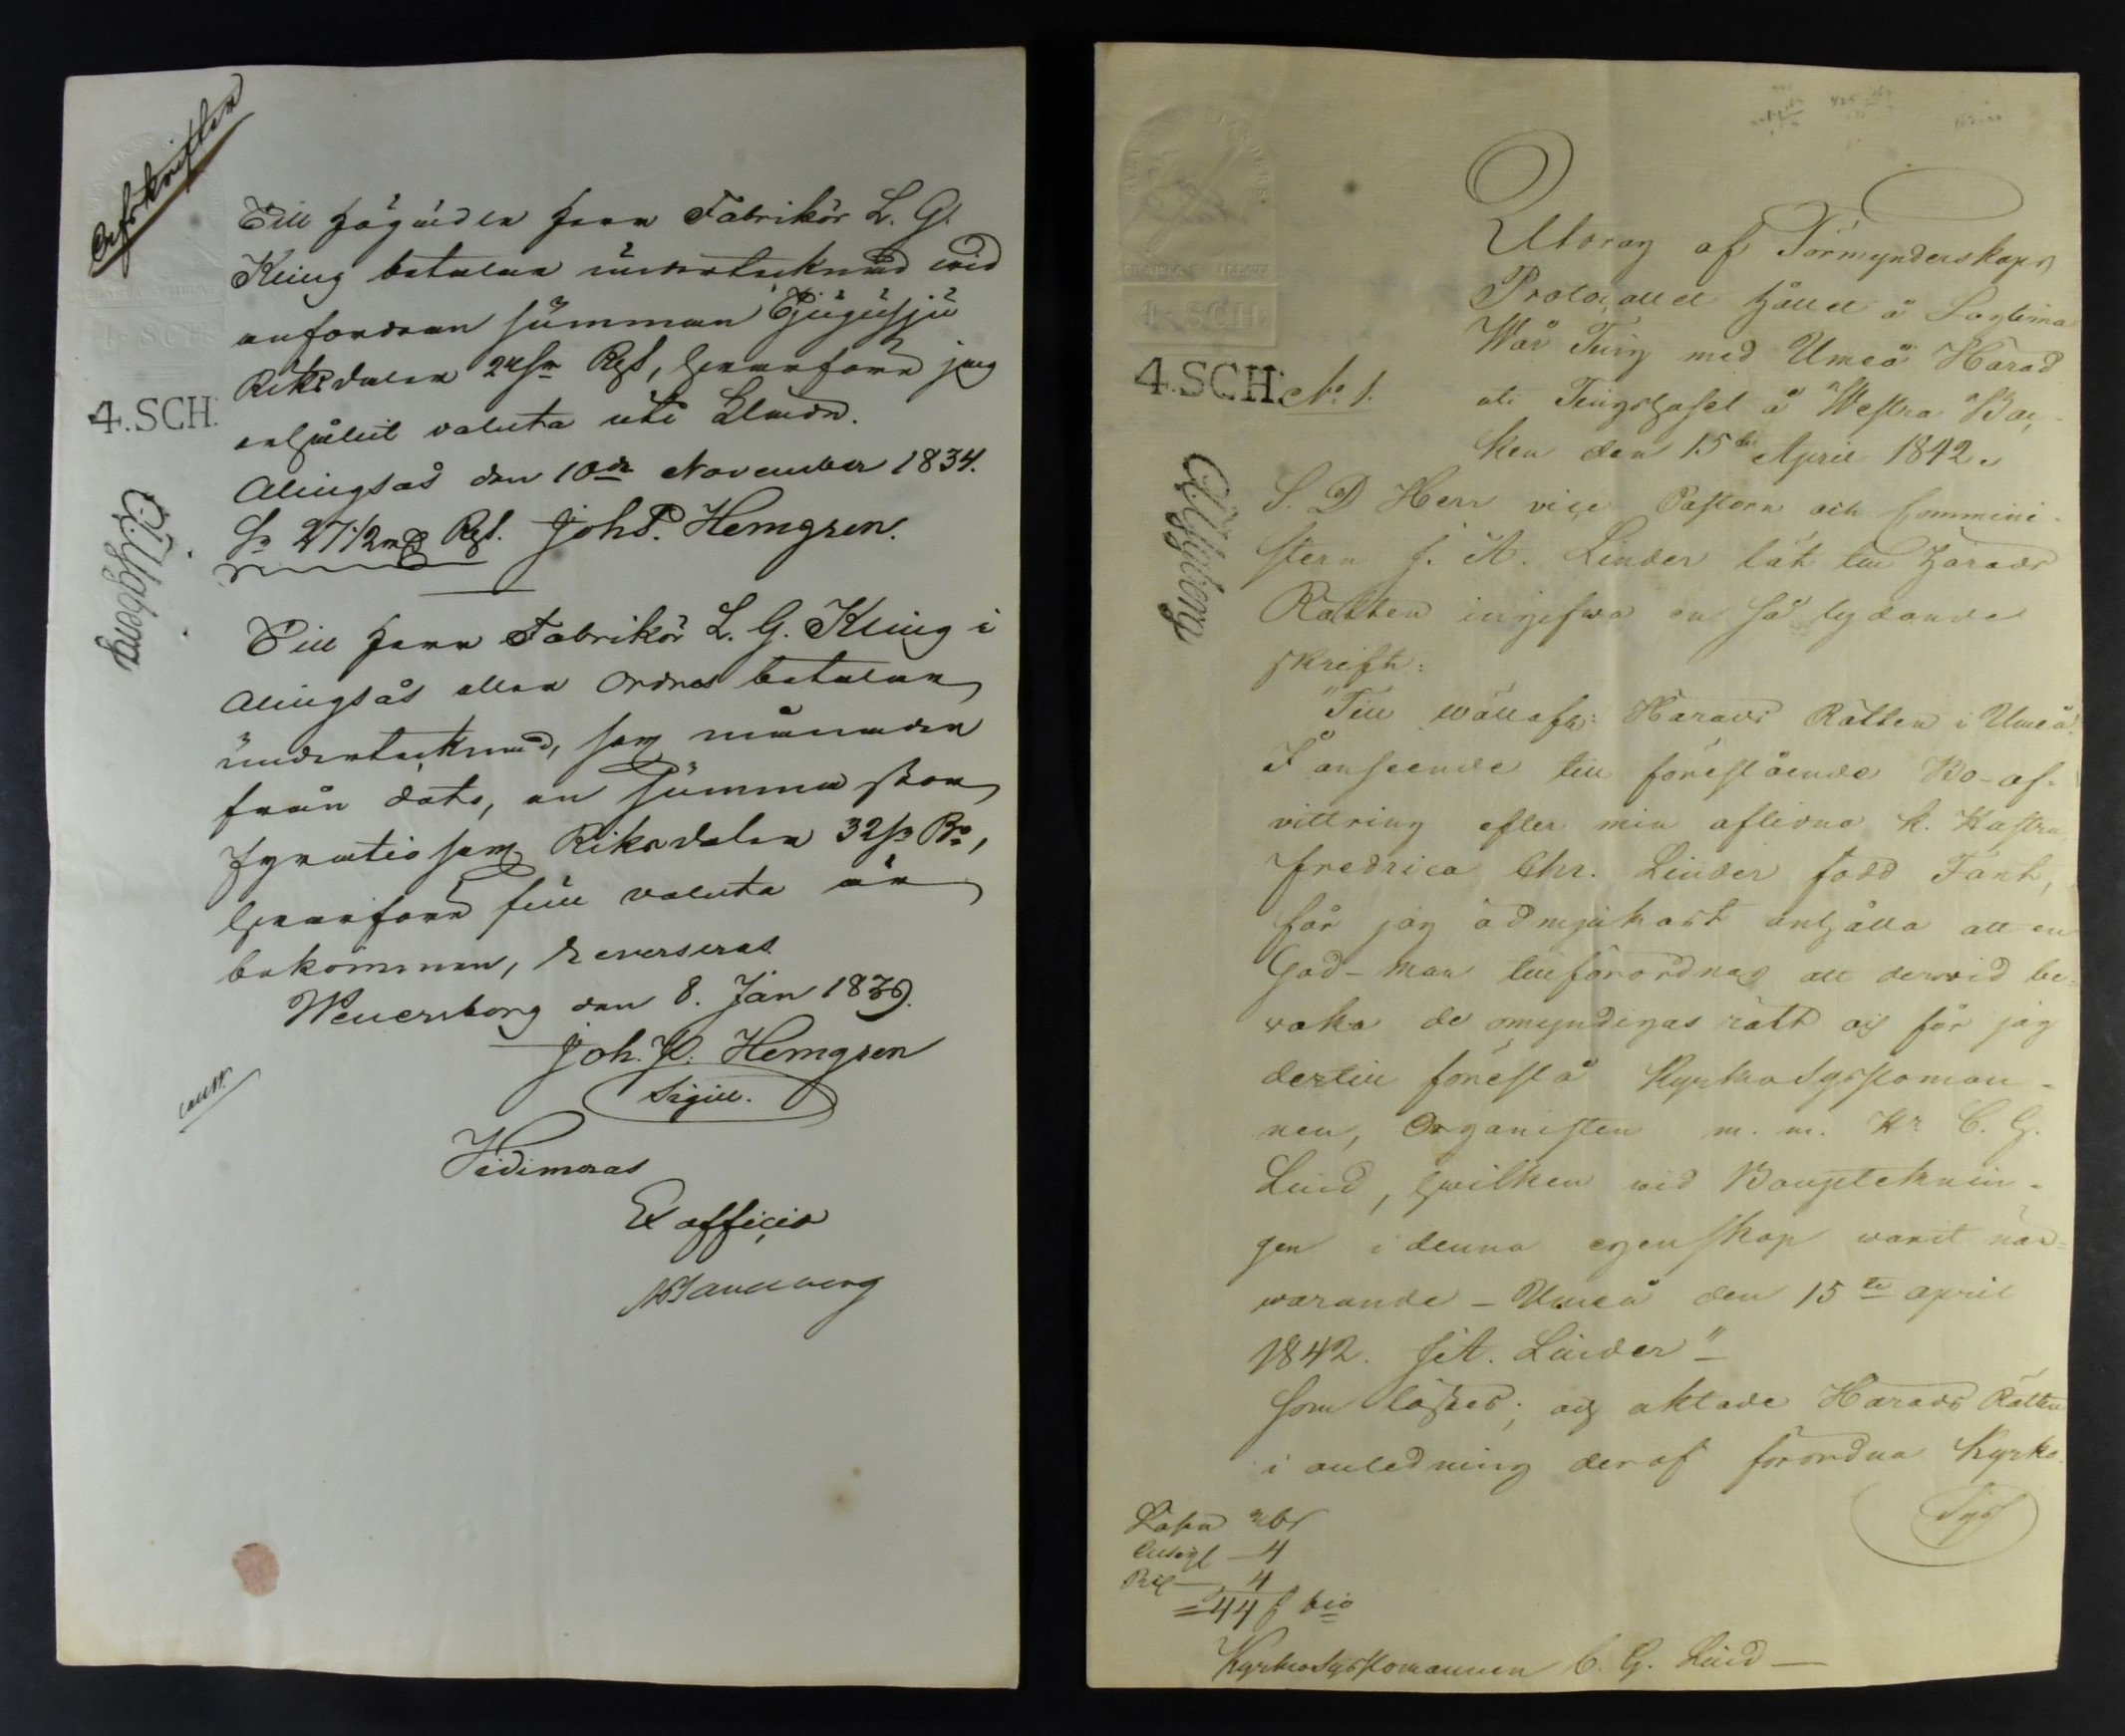 Afskrifter
4.SCH.
Till Högädle Herr Fabrikör L. G.
Kling betalar undertecknad wid
anfordran summan Tjugusju
Riksdaler 24 sk Rgs, hvarföre jag
erhållit valuta uti
Alingsås den 10de November 1834.
27:1/2 Rgs. Joh P. Hemgren.
Till Herr Fabrikör L. G. Kling i
Alingsås eller ordres betalar
undertecknad, sex månader
från dato, en summa stor
Fyratiosex Riksdaler 32 sk Bco,
hvarföre full valuta är
bekommen, reverseras
Wenersborg den 8. Jan 1839.
Joh. P. Hemgren
Sigill.
Vidimeras
Ex officio
4 SCH
4.SCH.
No 1.
Utdrag af Förmynderskaps
Protocollet hållet å Lagtima
Wår Ting med Umeå Härad
uti Tingshuset å Westra Bac-
ken den 15de April 1842.
S. D Herr vice Pastorn och Commini-
stern J. A. Linder lät till Härads
Rätten ingifwa en så lydande
skrift:
"Till Wällofl: Härads Rätten i Umeå!
I anseende till förestående Bo-af-
vittring efter min aflidna k. Hustru
Fredrica Chr. Linder född Fant,
får jag ödmjukast anhålla att en
God-man tillförordnas att dervid be-
vaka de omyndigas rätt och får jag
dertill föreslå Kyrkosysslоman-
nen, Organisten m. m. Hr C. G.
Lind, hwilken wid Bouptecknin-
gen i denna egenskap warit när-
warande - Umeå den 15de april
1842. J A. Linder"
Som lästes; och aktade Härads Rätten
i anledning deraf förordna Kyrko-
Sys
Lösen
4
4
44 sk bco
Kyrkosysslomannen C. G. Lind